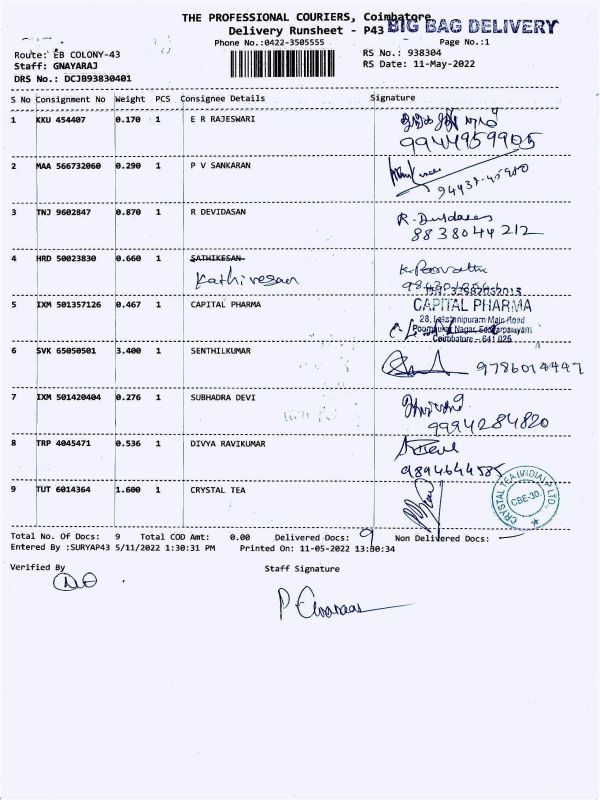 THE PROFESSIONAL COURIERS, Coimbatore
Delivery Runsheet - P43 BIG BAG DELIVERY
Phone No.:0422-3505555 Page No.:1
Route: EB COLONY-43 RS No.: 938304
Staff: GNAYARAJ RS Date: 11-May-2022
DRS No.: DCJB93830401
S No Consignment No Weight PCS Consignee Details Signature
1 KKU 454407 0.170 1 E R RAJESWARI
9944959905
2 MAA 566732060 0.290 1 P V SANKARAN
3 TNJ 9602847 0.870 1 R DEVIDASAN
8838044212
4 HRD 50023830 0.660 1 SATHIKESAN
Kathiresan
5 IXM 501357126 0.467 1 CAPITAL PHARMA CAPITAL PHARMA
28, Lakshmipuram Main Road
Nagar,
Coimbatore - 641 025
6 SVK 65050501 3.400 1 SENTHILKUMAR 9786014447
7 IXM 501420404 0.276 1 SUBHADRA DEVI
9994284820
8 TRP 4045471 0.536 1 DIVYA RAVIKUMAR
9894644585
9 TUT 6014364 1.600 1 CRYSTAL TEA CRYSTAL TEA (INDIA) P LTD.
CBE-30.
Total No. Of Docs: 9 Total COD Amt: 0.00 Delivered Docs: 9 Non Delivered Docs: —
Entered By :SURYAP43 5/11/2022 1:30:31 PM Printed On: 11-05-2022 13:30:34
Verified By Staff Signature